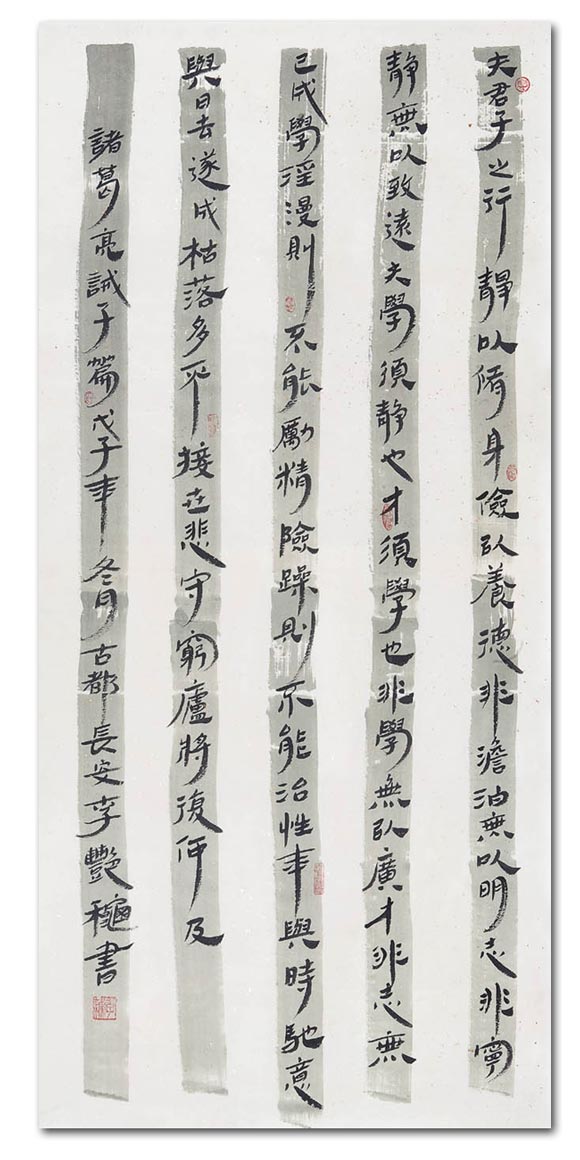 夫君子之行靜以脩身儉以養德非澹泊無以明志非寧
靜無以致遠夫學須靜也才須學也非學無以廣才非志無
已成學淫漫則不能勵精險躁則不能治性年與時馳意
與日去遂成枯落多不接世悲守窮廬將復何及
諸葛亮誡子篇戊子年冬月古都長安李艷穐書